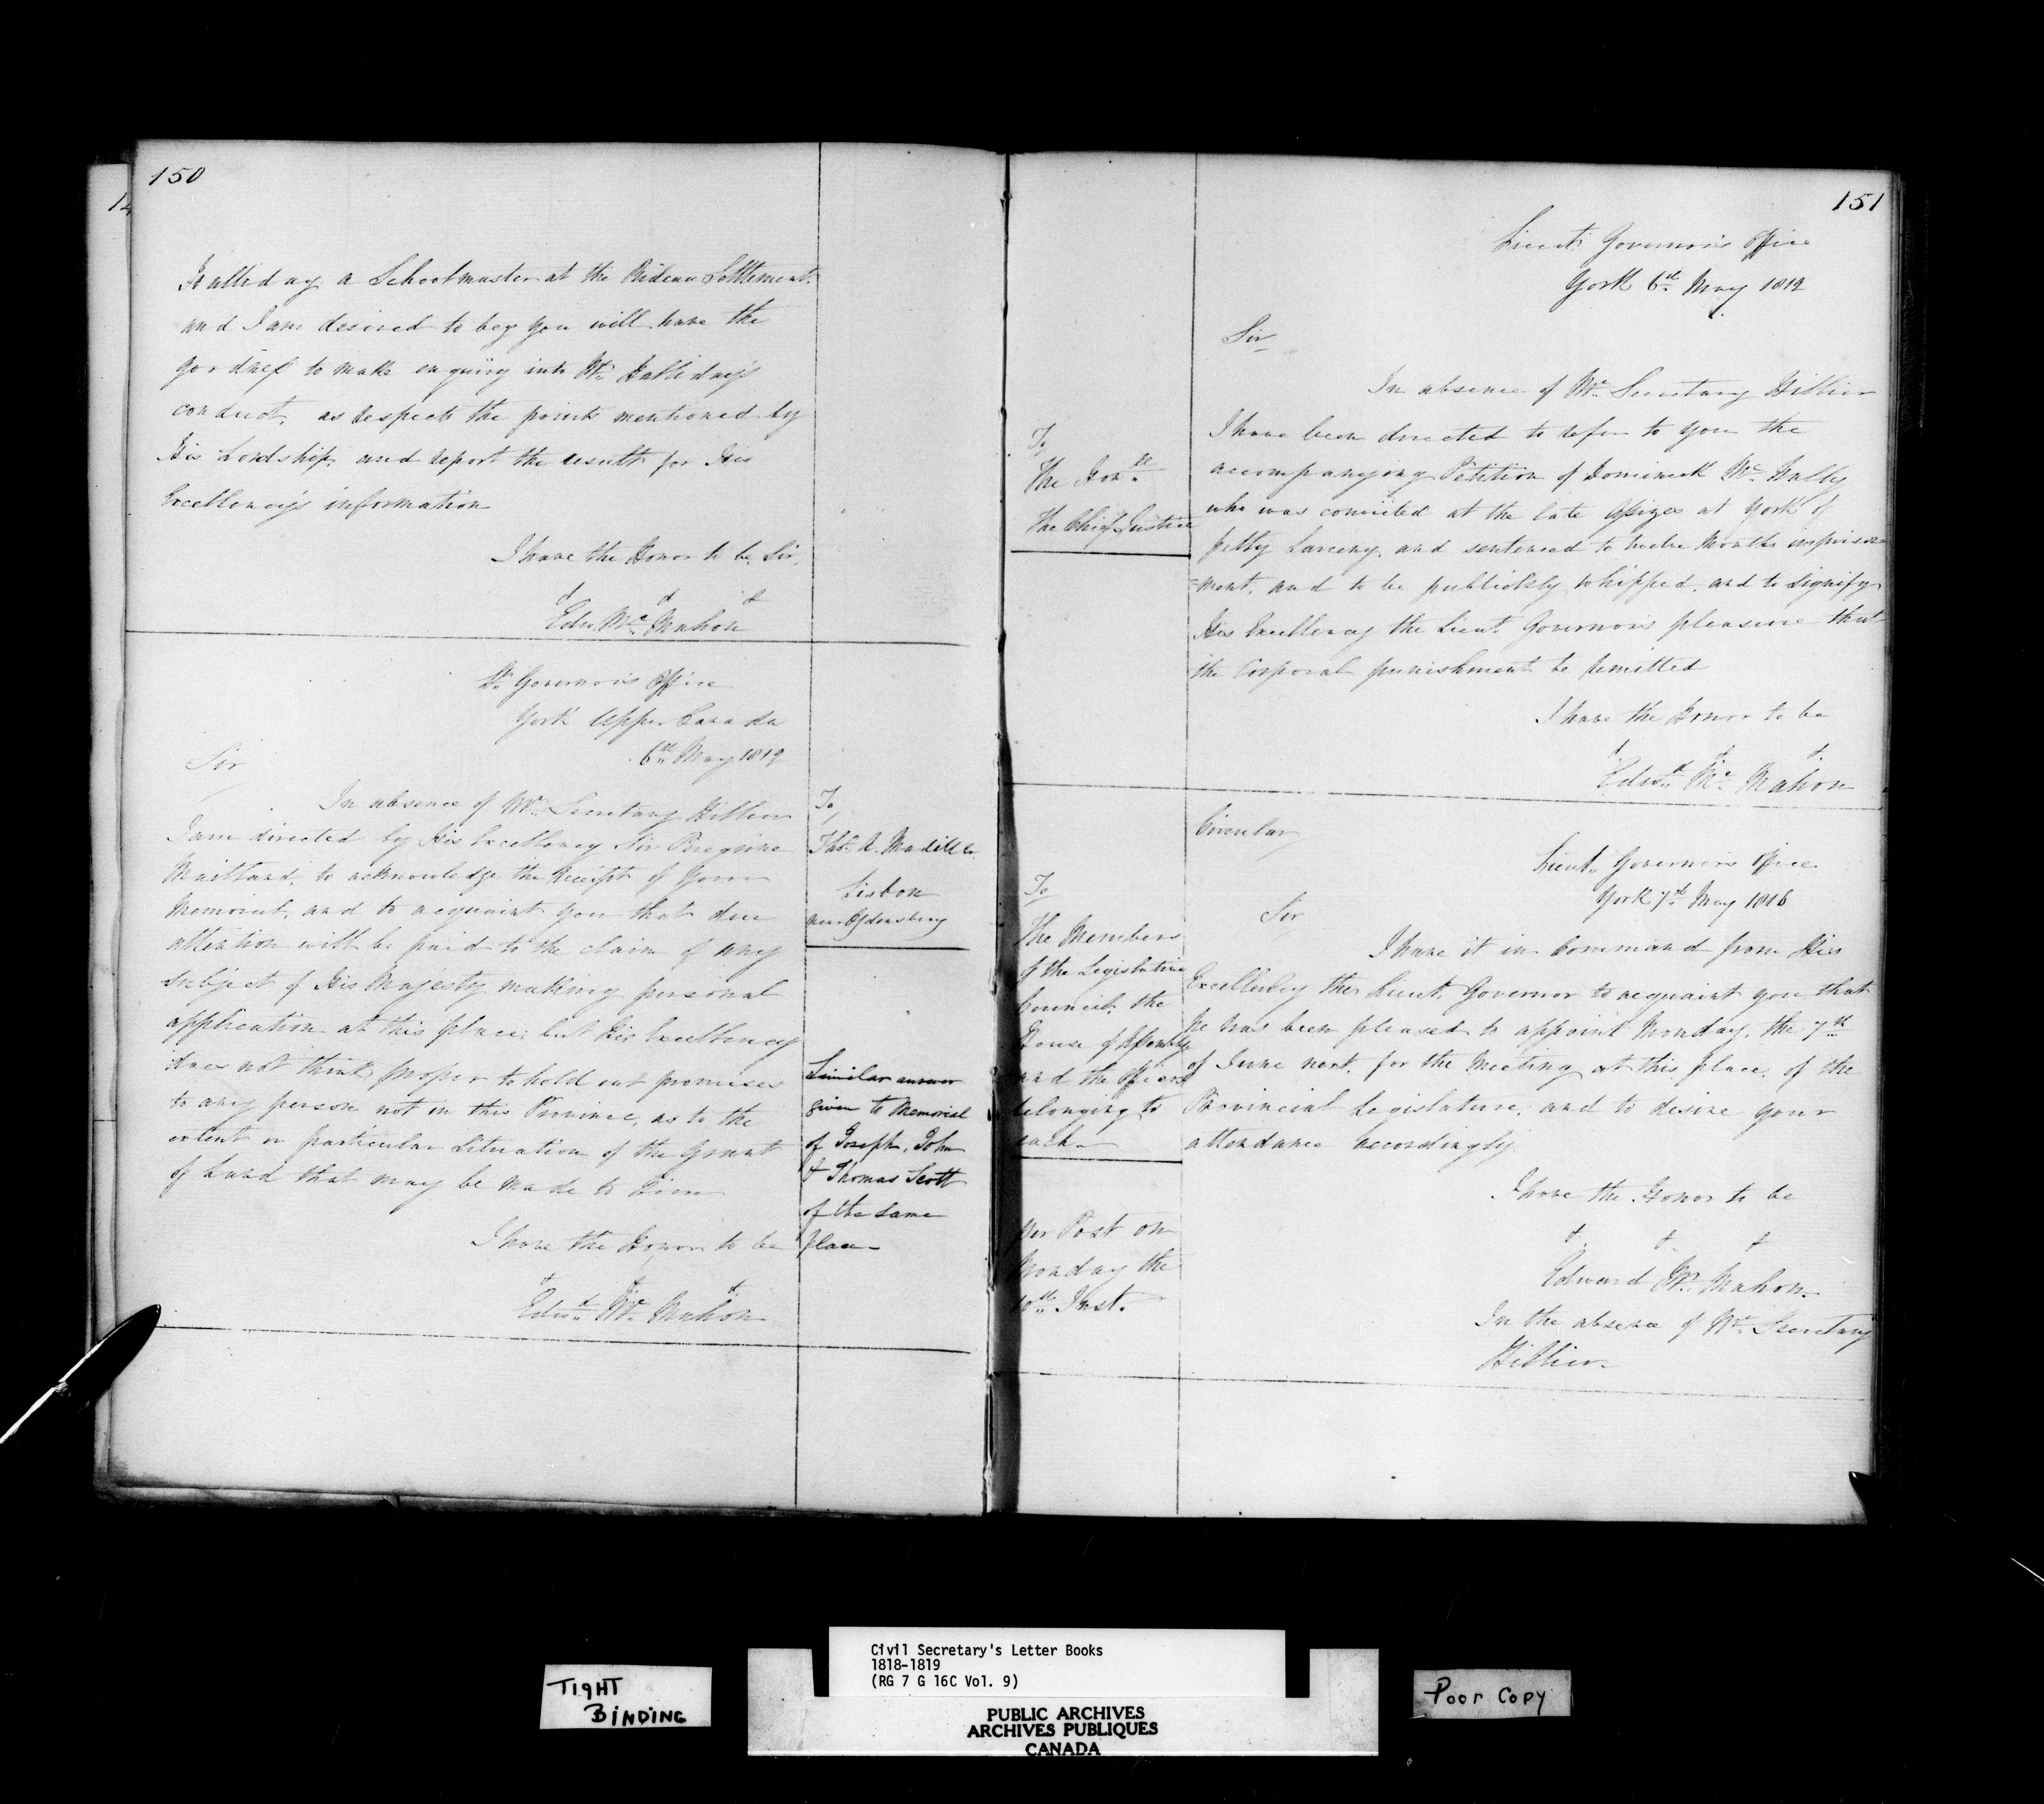 150
Halliday, a Schoolmaster at the Rideau Settlement.
and I am desired to beg you will have the
goodness to make enquiry into Mr. Halliday's
conduct, as respects the points mentioned by
His Lordship, and report the result for His
Excellency's information
I have the Honor to be, Sir,
&c &c &c
Edw. Mc Mahon
Lt. Governor's Office
York Upper Canada
6th May 1819
Sir
In absence of Mr. Secretary Hillier
I am directed by His Excellency Sir Peregrine
Maitland, to acknowledge the receipt of Your
Memorial, and to acquaint you that due
attention will be paid to the claim of any
subject of His Majesty making personal
application at this place; but His Excellency
does not think proper to hold out promises
to any person not in this Province, as to the
extent or particular Situation of the Grant
of Land that may be made to him
I have the Honor to be
&c &c &c
Edwd. Mc Mahon
To,
Thos. A. Madill
Lisbon
near Ogdensburg
Similar answer
given to Memorial
of Joseph, John
& Thomas Scott
of the same
place
151
Lieut. Governor's Office
York 6th May 1819
Sir
In absence of Mr. Secretary Hillier
I have been directed to refer to you the
accompanying Petition of Dominick Mc Nally
who was convicted at the late Assizes at York of
petty Larceny, and sentenced to twelve Months imprison=
=ment, and to be publickly whipped, and to signify
His Excellency the Lieut. Governor's pleasure that
the Corporal punishment be remitted
I have the Honor to be
&c &c &c
Edwd. Mc Mahon
To,
The Honble
The Chief Justice
Circular
Lieut. Governor's Office
York 7th May 1816
Sir
I have it in Command from His
Excellency the Lieut. Governor to acquaint you that
he has been pleased to appoint Monday, the 7th
of June next, for the Meeting at this place, of the
Provincial Legislature, and to desire your
attendance accordingly.
I have the Honor to be
&c &c &c
Edward Mc Mahon.
In the absence of Mr. Secretary
Hillier
To
The Members
of the Legislative
Council, the
House of Assembly
and the Officers
belonging to
each
per Post on
Monday the
10th Inst.
TIGHT
BINDING
Civil Secretary's Letter Books
1818-1819
(RG 7 G 16C Vol. 9)
PUBLIC ARCHIVES
ARCHIVES PUBLIQUES
CANADA
Poor Copy